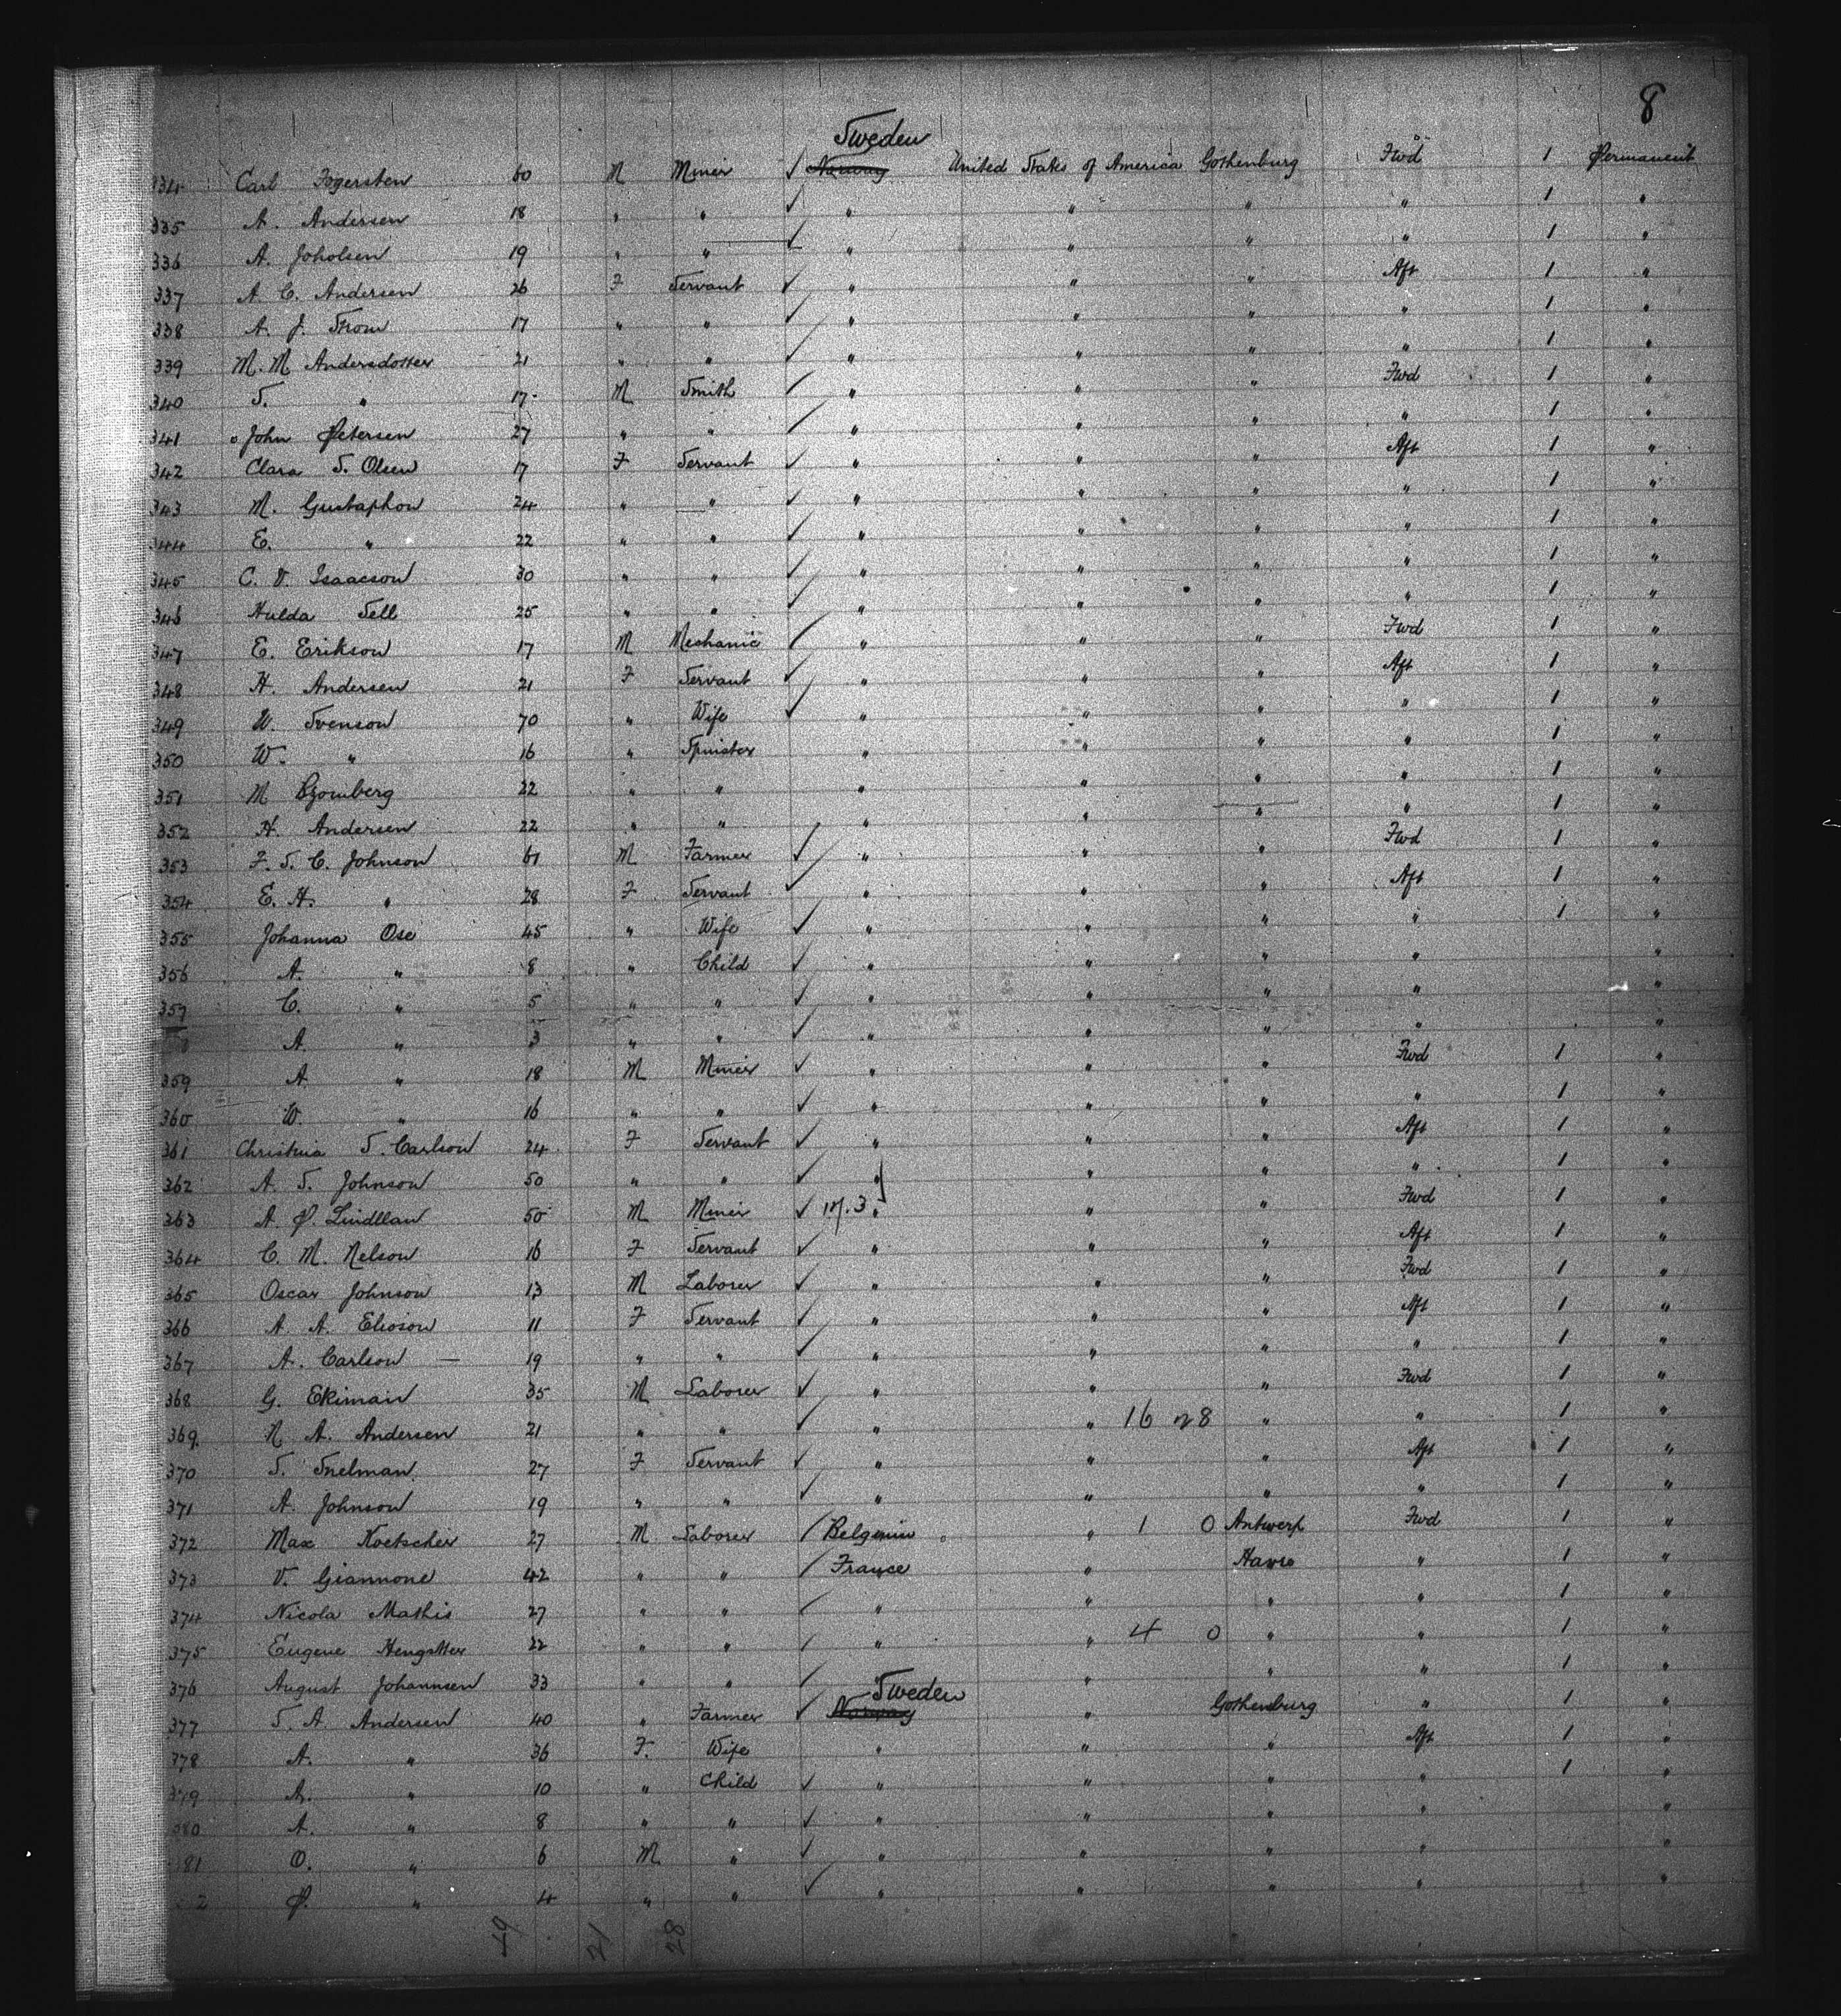 8
Sweden
334 Carl Fogersten 60 M Miner ✓ Norway United States of America Gothenburg Fwd 1 Permanent
335 A. Andersen 18 " " ✓ " " " " 1 "
336 A. Joholsen 19 " " ✓ " " " " 1 "
337 A C. Andersen 26 F Servant ✓ " " " Aft 1 "
338 A. J. Strom 17 " " ✓ " " " " 1 "
339 M. M Andersdotter 21 " " ✓ " " " " 1 "
340 S. " 17 M Smith ✓ " " " Fwd 1 "
341 John Petersen 27 " " ✓ " " " " 1 "
342 Clara S. Olsen 17 F Servant ✓ " " " Aft 1 "
343 M. Gustaphon 24 " " ✓ " " " " 1 "
344 E. " 22 " " ✓ " " " " 1 "
345 C. V. Isaacson 30 " " ✓ " " " " 1 "
346 Hulda Sell 25 " " ✓ " " " " 1 "
347 E. Erikson 17 M Mechanic ✓ " " " Fwd 1 "
348 H. Andersen 21 F Servant ✓ " " " Aft 1 "
349 W. Svenson 70 " Wife ✓ " " " " 1 "
350 W. " 16 " Spinster " " " " 1 "
351 M Bjomberg 22 " " " " " " 1 "
352 H. Andersen 22 " " " " " " 1 "
353 F. S. C. Johnson 61 M Farmer ✓ " " " Fwd 1 "
354 E. H. " 28 F Servant ✓ " " " Aft 1 "
355 Johanna Ose 45 " Wife ✓ " " " " 1 "
356 A. " 8 " Child ✓ " " " " "
357 C. " 5 " " ✓ " " " " "
A. " 3 " " ✓ " " " " "
359 A. " 18 M Miner ✓ " " " Fwd 1 "
360 W. " 16 " " ✓ " " " " 1 "
361 Christina S. Carlson 24 F Servant ✓ " " " Aft 1 "
362 A. S. Johnson 50 " " ✓ " " " " 1 "
363 A. P. Lindllau 50 M Miner ✓ " " " Fwd 1 "
364 C. M. Nelson 16 F Servant ✓ " " " Aft 1 "
365 Oscar Johnson 13 M Laborer ✓ " " " Fwd 1 "
366 A. A. Elioson 11 F Servant ✓ " " " Aft 1 "
367 A. Carlson — 19 " " ✓ " " " " 1 "
368 G. Ekimain 35 M Laborer ✓ " " " Fwd 1 "
369. N A. Andersen 21 " " ✓ " " 16 28 " " 1 "
370 S. Snelman 27 F Servant ✓ " " " Aft 1 "
371 A. Johnson 19 " " ✓ " " " " 1 "
372 Max Koetscher 27 M Laborer ✓ Belgium " 1 0 Antwerp Fwd 1 "
373 V. Giannone 42 " " ✓ France " Havre " 1 "
374 Nicola Mathis 27 " " ✓ " " " " 1 "
375 Eugene Hengstter 22 " " ✓ " " 4 0 " " 1 "
376 August Johannsen 33 " " ✓ " " " 1 "
Sweden
377 S. A. Andersen 40 " Farmer ✓ Norway " Gothenburg " 1 "
378 A. " 36 F. Wife " " " Aft 1 "
379 A. " 10 " Child ✓ " " " " 1 "
380 A. " 8 " " ✓ " " " " "
381 O. " 6 M " ✓ " " " " "
2 P. " 4 " " ✓ " " " " "
49 21 28